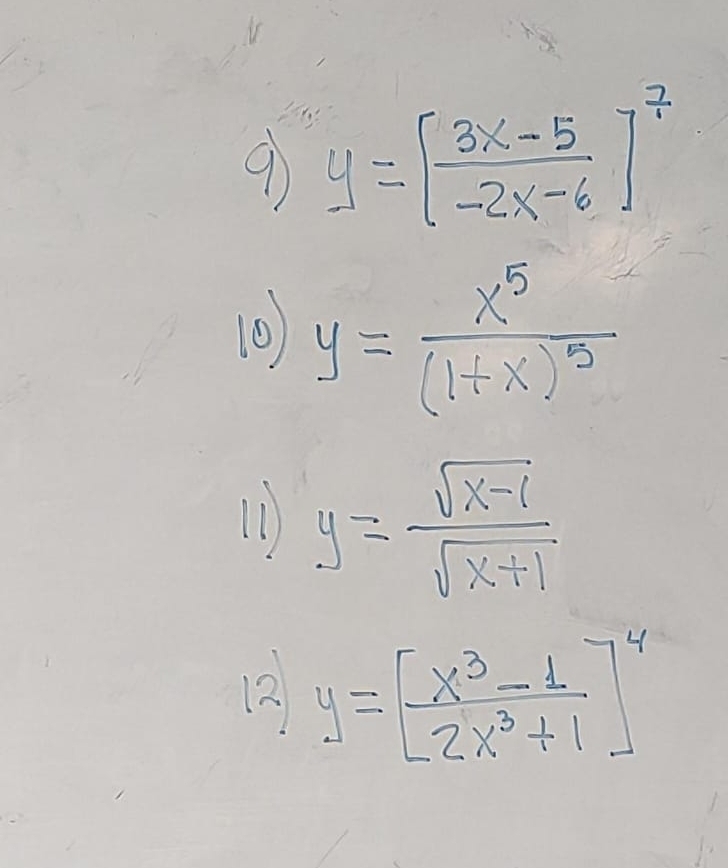 9) y = [ (3x - 5) / (-2x - 6) ]^7
10) y = x^5 / (1+x)^5
11) y = √(x-1) / √(x+1)
12) y = [ (x^3 - 1) / (2x^3 + 1) ]^4